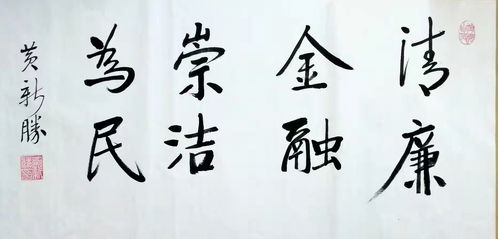 清廉
金融
崇洁
為民
黄新勝